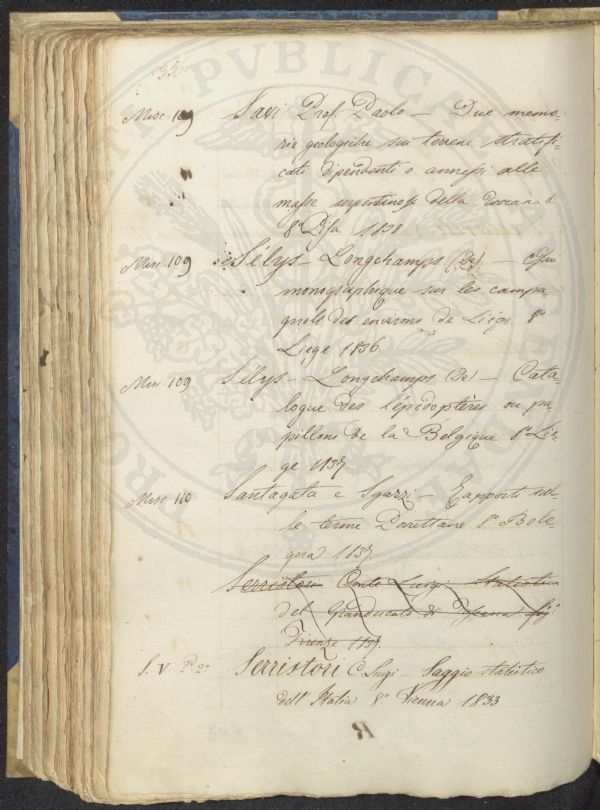 356
Misc. 109 Savi Prof. Paolo — Due memo-
rie geologiche sui terreni stratifi-
cati dipendenti o annessi alle
masse serpentinose della Toscana
8° Pisa 1838
Misc. 109 Sélys-Longchamps (De) —
monographique sur les campa-
gnols des environs de Liège 8°
Liege 1836
Misc. 109 Sélys-Longchamps (De) — Cata-
logue des lépidoptères ou pa-
pillons de la Belgique 8° Liè-
ge 1837
Misc. 110 Santagata e Sgarzi — Rapporti sul-
le terme Porrettane 8° Bolo-
gna 1837
Serristori Conte Luigi Statistica
del Granducato di Toscana
Firenze 1837
S. V P. 2° Serristori C. Luigi Saggio statistico
dell'Italia 8° Vienna 1833
R